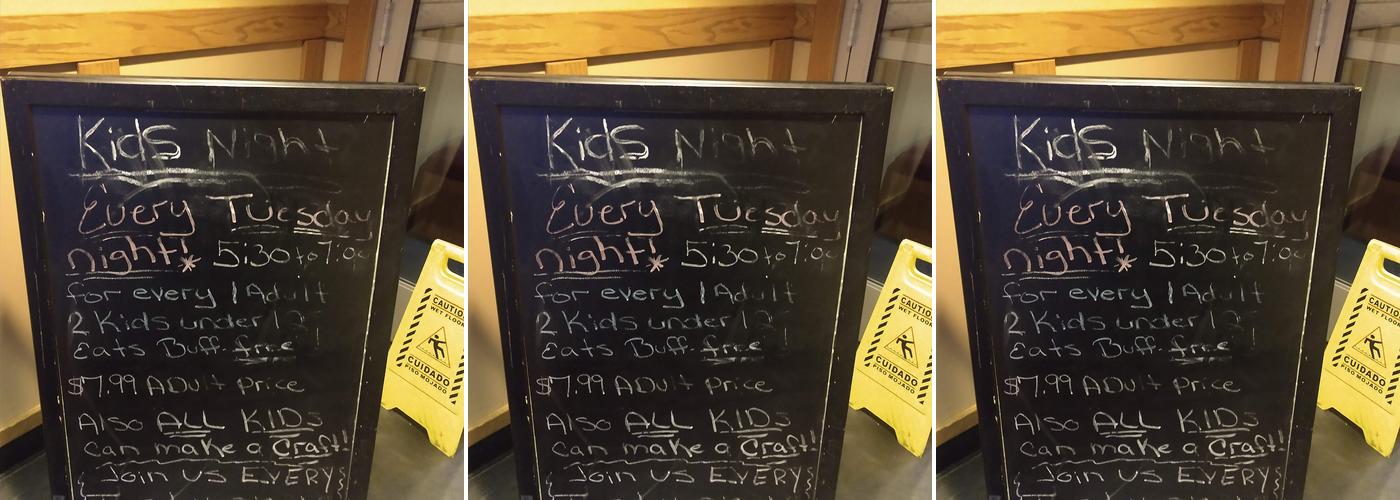 Kids Night
Every Tuesday
night!* 5:30 to 7:00
for every 1 Adult
2 Kids under 12
Eats Buff. free!
$7.99 ADult price
Also ALL KIDs
can make a Craft!
Join us EVERY
CAUTIO
WET FLOOR
CUIDADO
PISO MOJADO
Kids Night
Every Tuesday
night!* 5:30 to 7:00
for every 1 Adult
2 Kids under 12
Eats Buff. free!
$7.99 ADult price
Also ALL KIDs
can make a Craft!
Join us EVERY
CAUTIO
WET FLOOR
CUIDADO
PISO MOJADO
Kids Night
Every Tuesday
night!* 5:30 to 7:00
for every 1 Adult
2 Kids under 12
Eats Buff. free!
$7.99 ADult price
Also ALL KIDs
can make a Craft!
Join us EVERY
CAUTIO
WET FLOOR
CUIDADO
PISO MOJADO